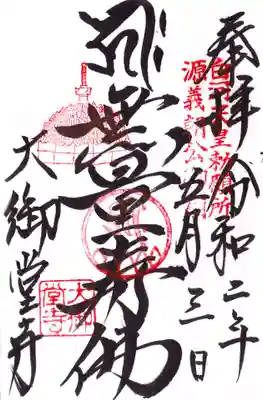 奉拝
令和二年
五月三日
白河天皇勅願所
源義朝公
無量寿佛
大御堂寺
大御堂寺